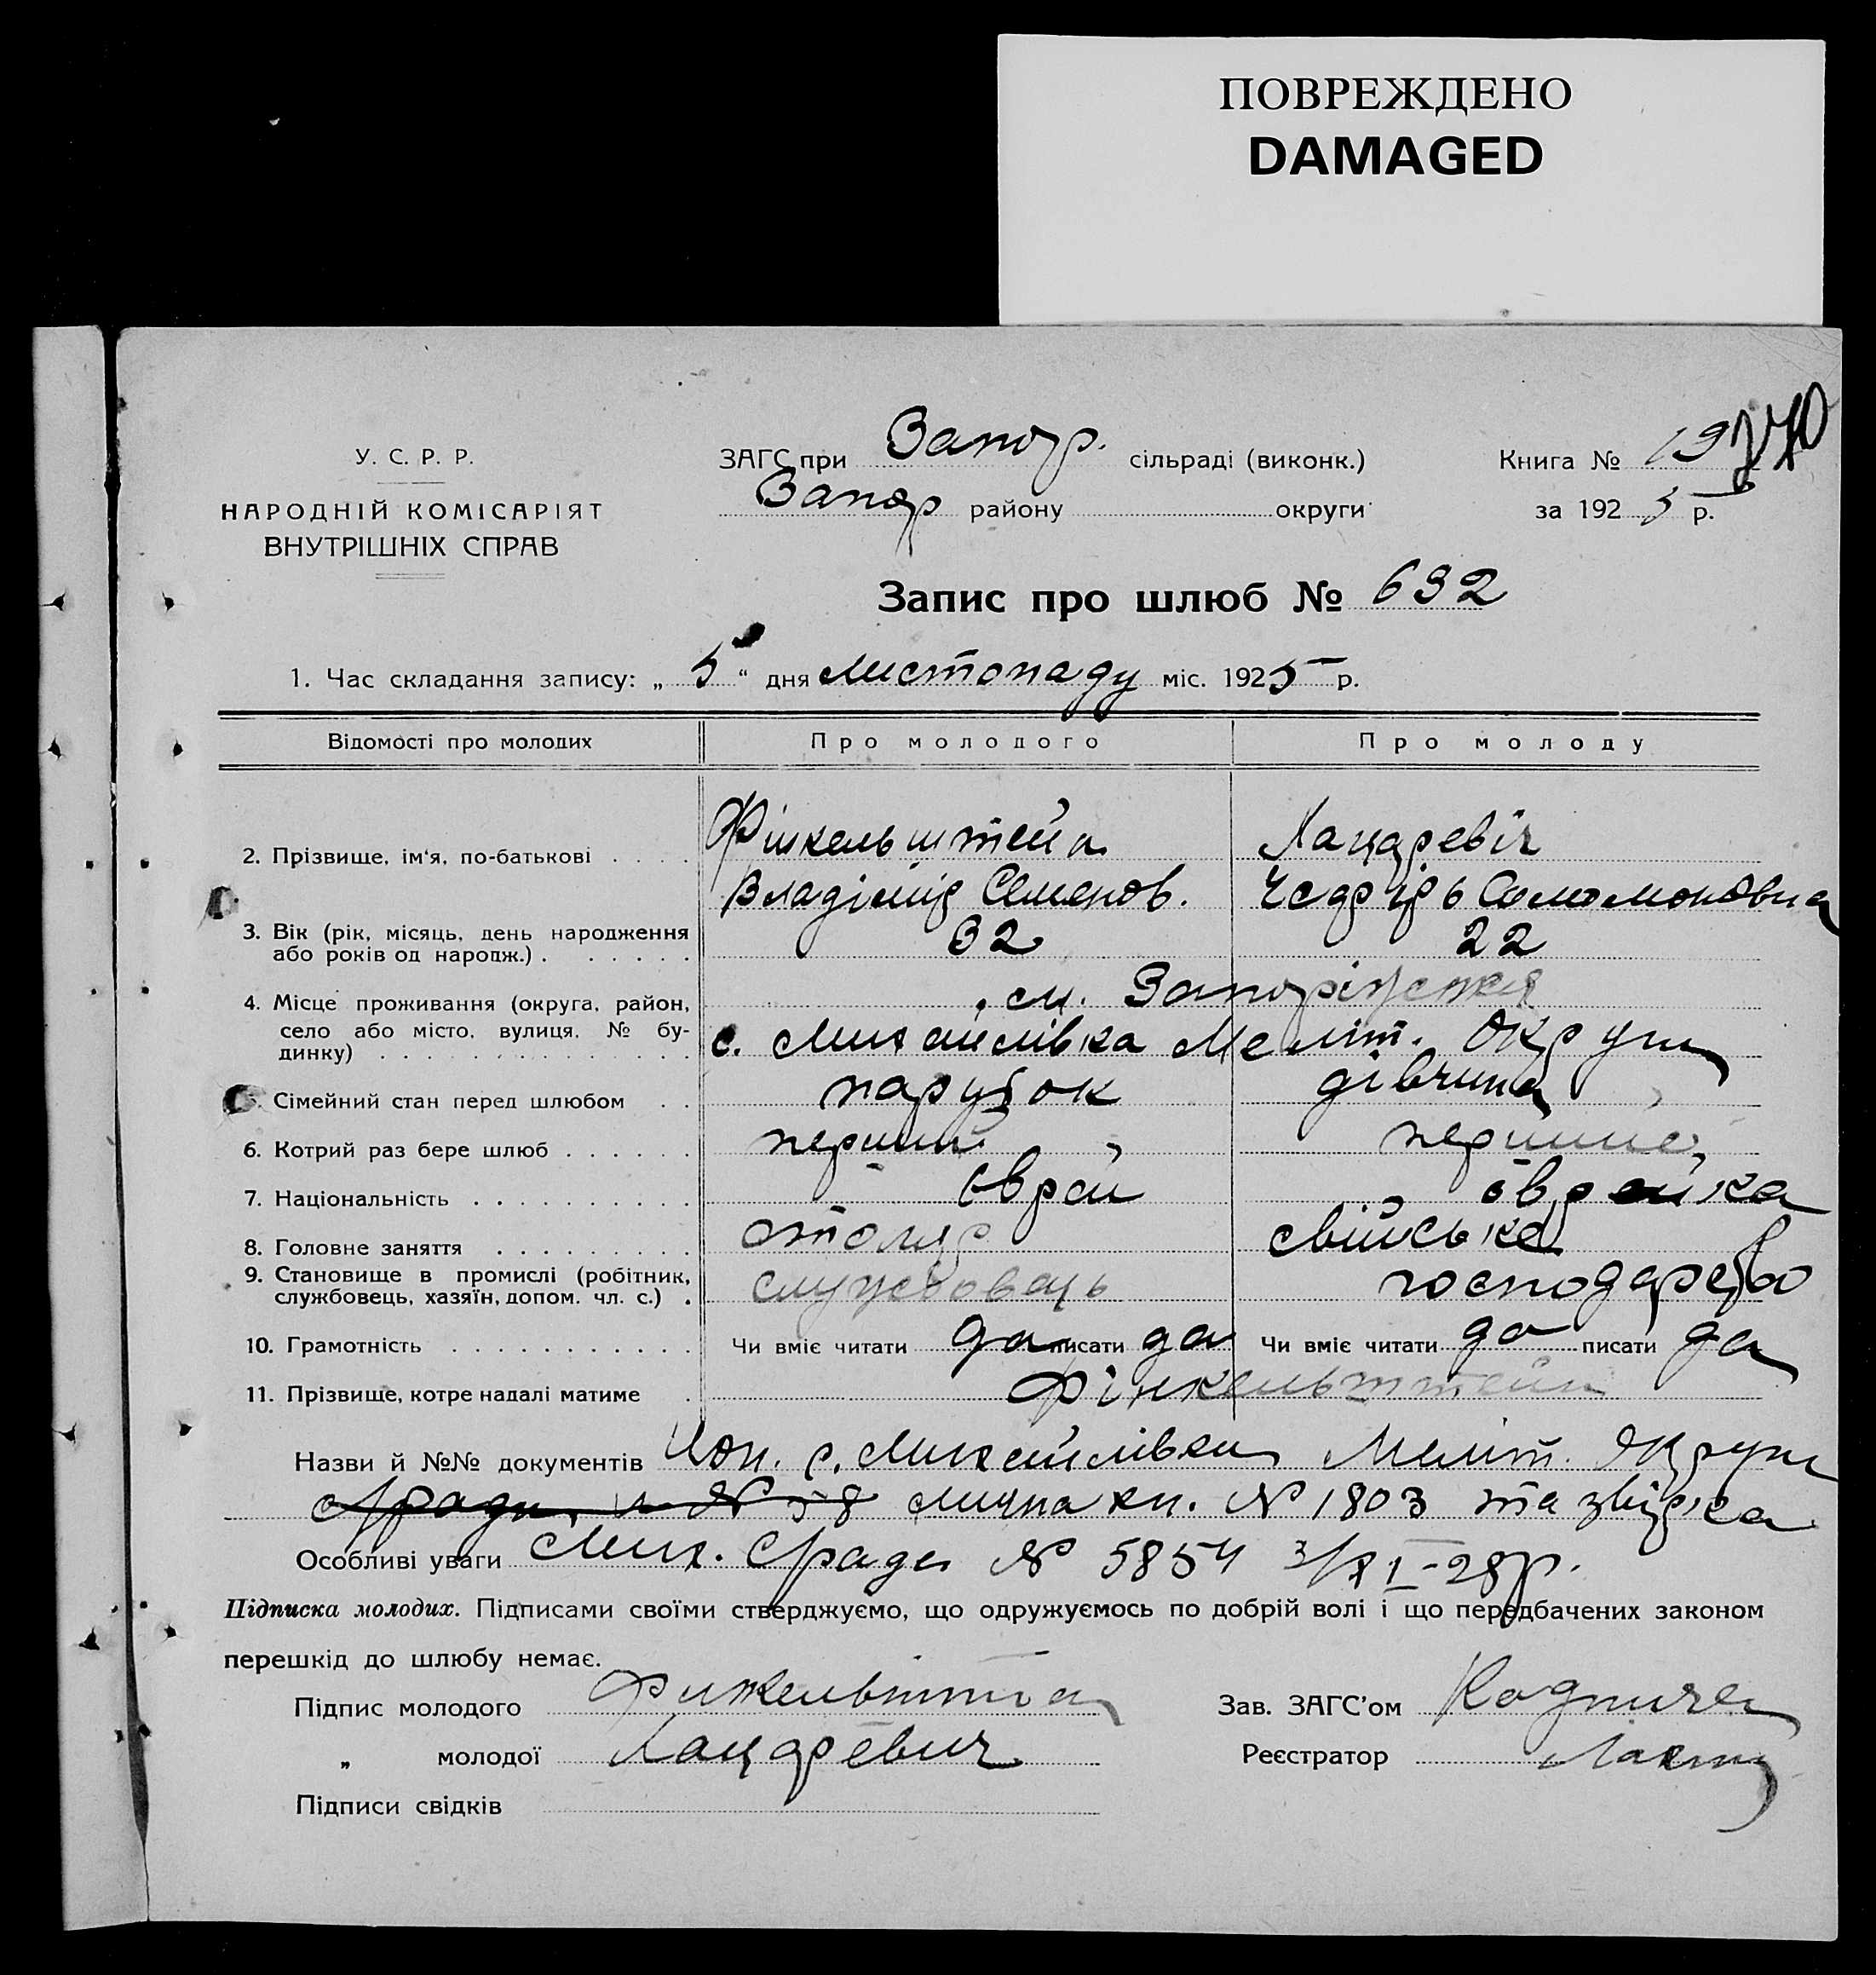 ПОВРЕЖДЕНО
DAMAGED
У. С. Р. Р.
НАРОДНІЙ КОМІСАРІЯТ
ВНУТРІШНІХ СПРАВ
ЗАГС при Запор. сільраді (виконк.)
Запор району округи
Книга № 19
270
за 1925 р.
Запис про шлюб № 692
1. Час складання запису: „ 5 “ дня листопаду міс. 1925 р.
Відомості про молодих Про молодого Про молоду
2. Прізвище, ім'я, по-батькові Фінкельштейн Лацаревіч
Владімір Семенов. Соломоновна
3. Вік (рік, місяць, день народження 32 22
або років од народж.)
4. Місце проживання (округа, район, м. Запоріжжя
село або місто, вулиця, № бу- с. Михайлівка Меліт. Округи
динку)
5. Сімейний стан перед шлюбом парубок дівчина
6. Котрий раз бере шлюб перший перший
7. Національність єврей єврейка
8. Головне заняття столяр свійське
9. Становище в промислі (робітник, господарство
службовець, хазяїн, допом. чл. с.) службовець
10. Грамотність Чи вміє читати да писати да Чи вміє читати да писати да
11. Прізвище, котре надалі матиме Фінкельштейн
Назви й №№ документів с. Михайлівки Меліт. Округи
С/ради № 58 кн. № 1803 та звірка
Особливі уваги Мих. С/ради № 5854 3/XI-25р.
Підписка молодих. Підписами своїми стверджуємо, що одружуємось по добрій волі і що передбачених законом
перешкід до шлюбу немає.
Підпис молодого Финкельштейн
Зав. ЗАГС'ом
„ молодої Лацаревич
Реєстратор
Підписи свідків